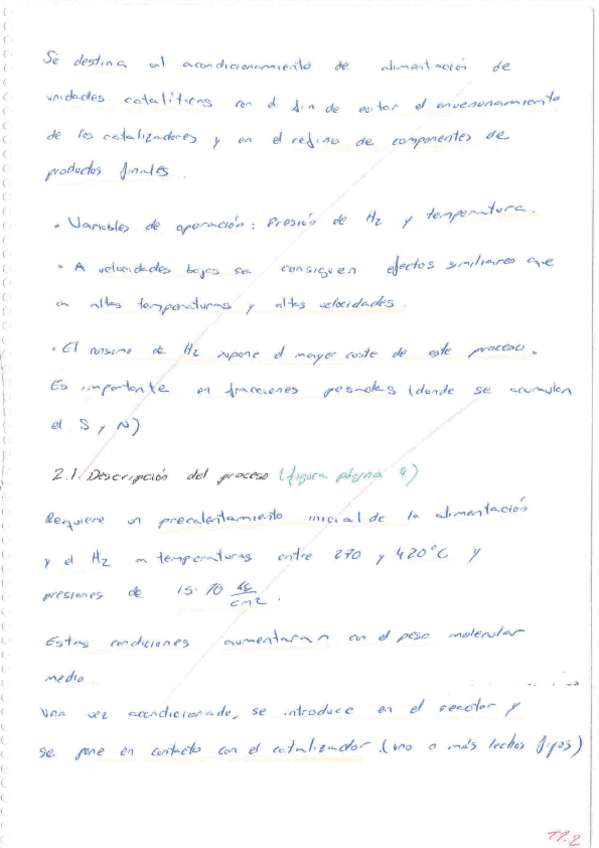 Se destina al acondicionamiento de alimentación de
unidades catalíticas con el fin de evitar el envenenamiento
de los catalizadores y en el refino de componentes de
productos finales.
• Variables de operación: Presión de H2 y temperatura.
• A velocidades bajas se consiguen efectos similiares que
en altas temperaturas y altas velocidades.
• El consumo de H2 supone el mayor coste de este proceso.
Es importante en fracciones pesadas (donde se acumulan
el S y N)
2.1. Descripción del proceso (figura página 9)
Requiere un precalentamiento inicial de la alimentación
y el H2 a temperaturas entre 270 y 420°C y
presiones de 15-70 kg/cm2.
Estas condiciones aumentaran con el peso molecular
medio.
Una vez acondicionado, se introduce en el reactor y
se pone en contacto con el catalizador. (uno o más lechos fijos)